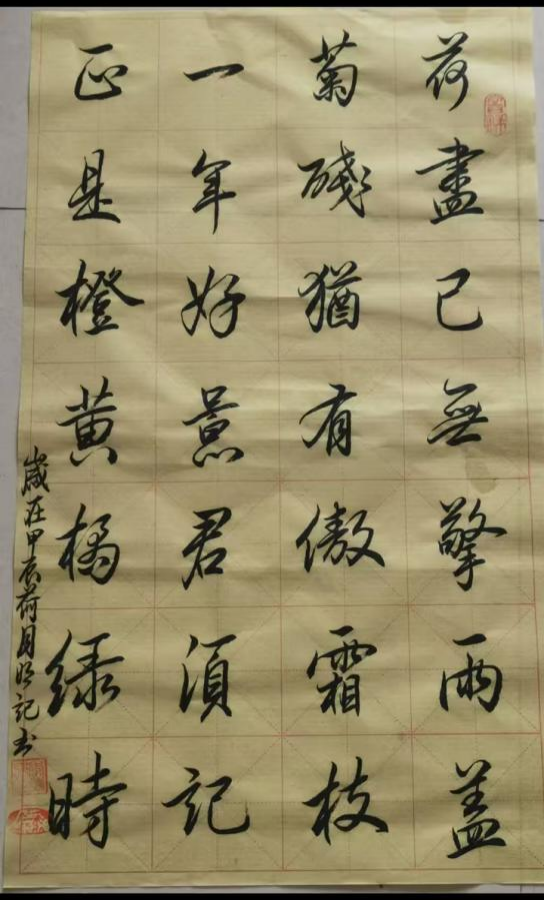 荷盡已無擎雨盖
菊殘猶有傲霜枝
一年好景君須記
正是橙黄橘绿時
歲在甲辰荷月
記书